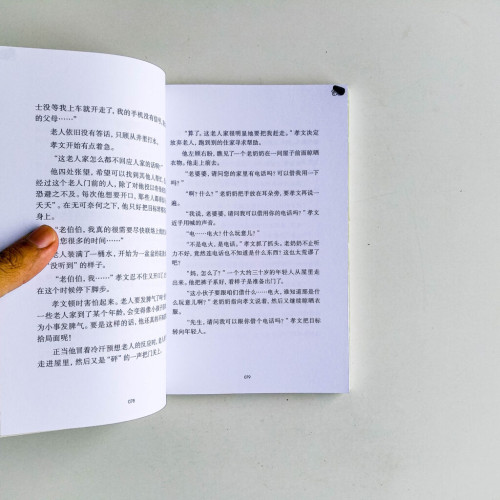 士没等我上车就开走了，我的手机没有信号，
的父母……”
老人依旧没有答话，只顾从井里打水。
孝文开始有点着急。
“这老人家怎么都不回应人家的话啊？”
他四处张望，希望可以找到其他人帮忙，
经过这个老人门前的人，除了对他投以
恐避之不及，每次他想要开口，那些人都
天”。在无可奈何之下，他只好把目标
身上。
“老伯伯，我真的很需要尽快联络上
您很多的时间……”
老人装满了一桶水，开始为一盆盆的
“没听到”的样子。
“老伯伯，我……”孝文忍不住又开口，
在这个时候停下脚步。
孝文顿时害怕起来。老人要发脾气了
一些老人家到了某个年龄，会变得像小孩子
为小事发脾气。要是这样的话，他还真的不
拾局面呢！
正当他冒着冷汗预想老人的反应时，老人
走进屋里，然后又是“砰”的一声把门关上。
078
“算了，这老人家很明显地要把我赶走。”孝文决定
放弃老人，跑到别的住家寻求帮助。
他左顾右盼，瞧见了一个老奶奶在一间屋子前面晾晒
衣物，他走上前去。
“老婆婆，请问您的家里有电话吗？可以借我用一下
吗？”
“啊！什么？”老奶奶把手放在耳朵旁，要孝文再说一
遍。
“我说，老婆婆，请问我可以借用你的电话吗？”孝文
近乎用喊的声音。
“电……电火？什么玩意儿？”
“不是电火，是电话。”孝文抓了抓头，老奶奶不止听
力不好，竟然连电话也不知道是什么东西？这也太荒谬了
吧？
“妈，怎么了？”一个大约三十岁的年轻人从屋里走
出来，他把裤子系好，看样子是准备出门了。
“这小伙子要跟咱们借什么……电火，谁知道那是什
么玩意儿啊？”老奶奶指向孝文说着，然后又继续晾晒衣
服。
“先生，请问我可以跟你借个电话吗？”孝文把目标
转向年轻人。
079